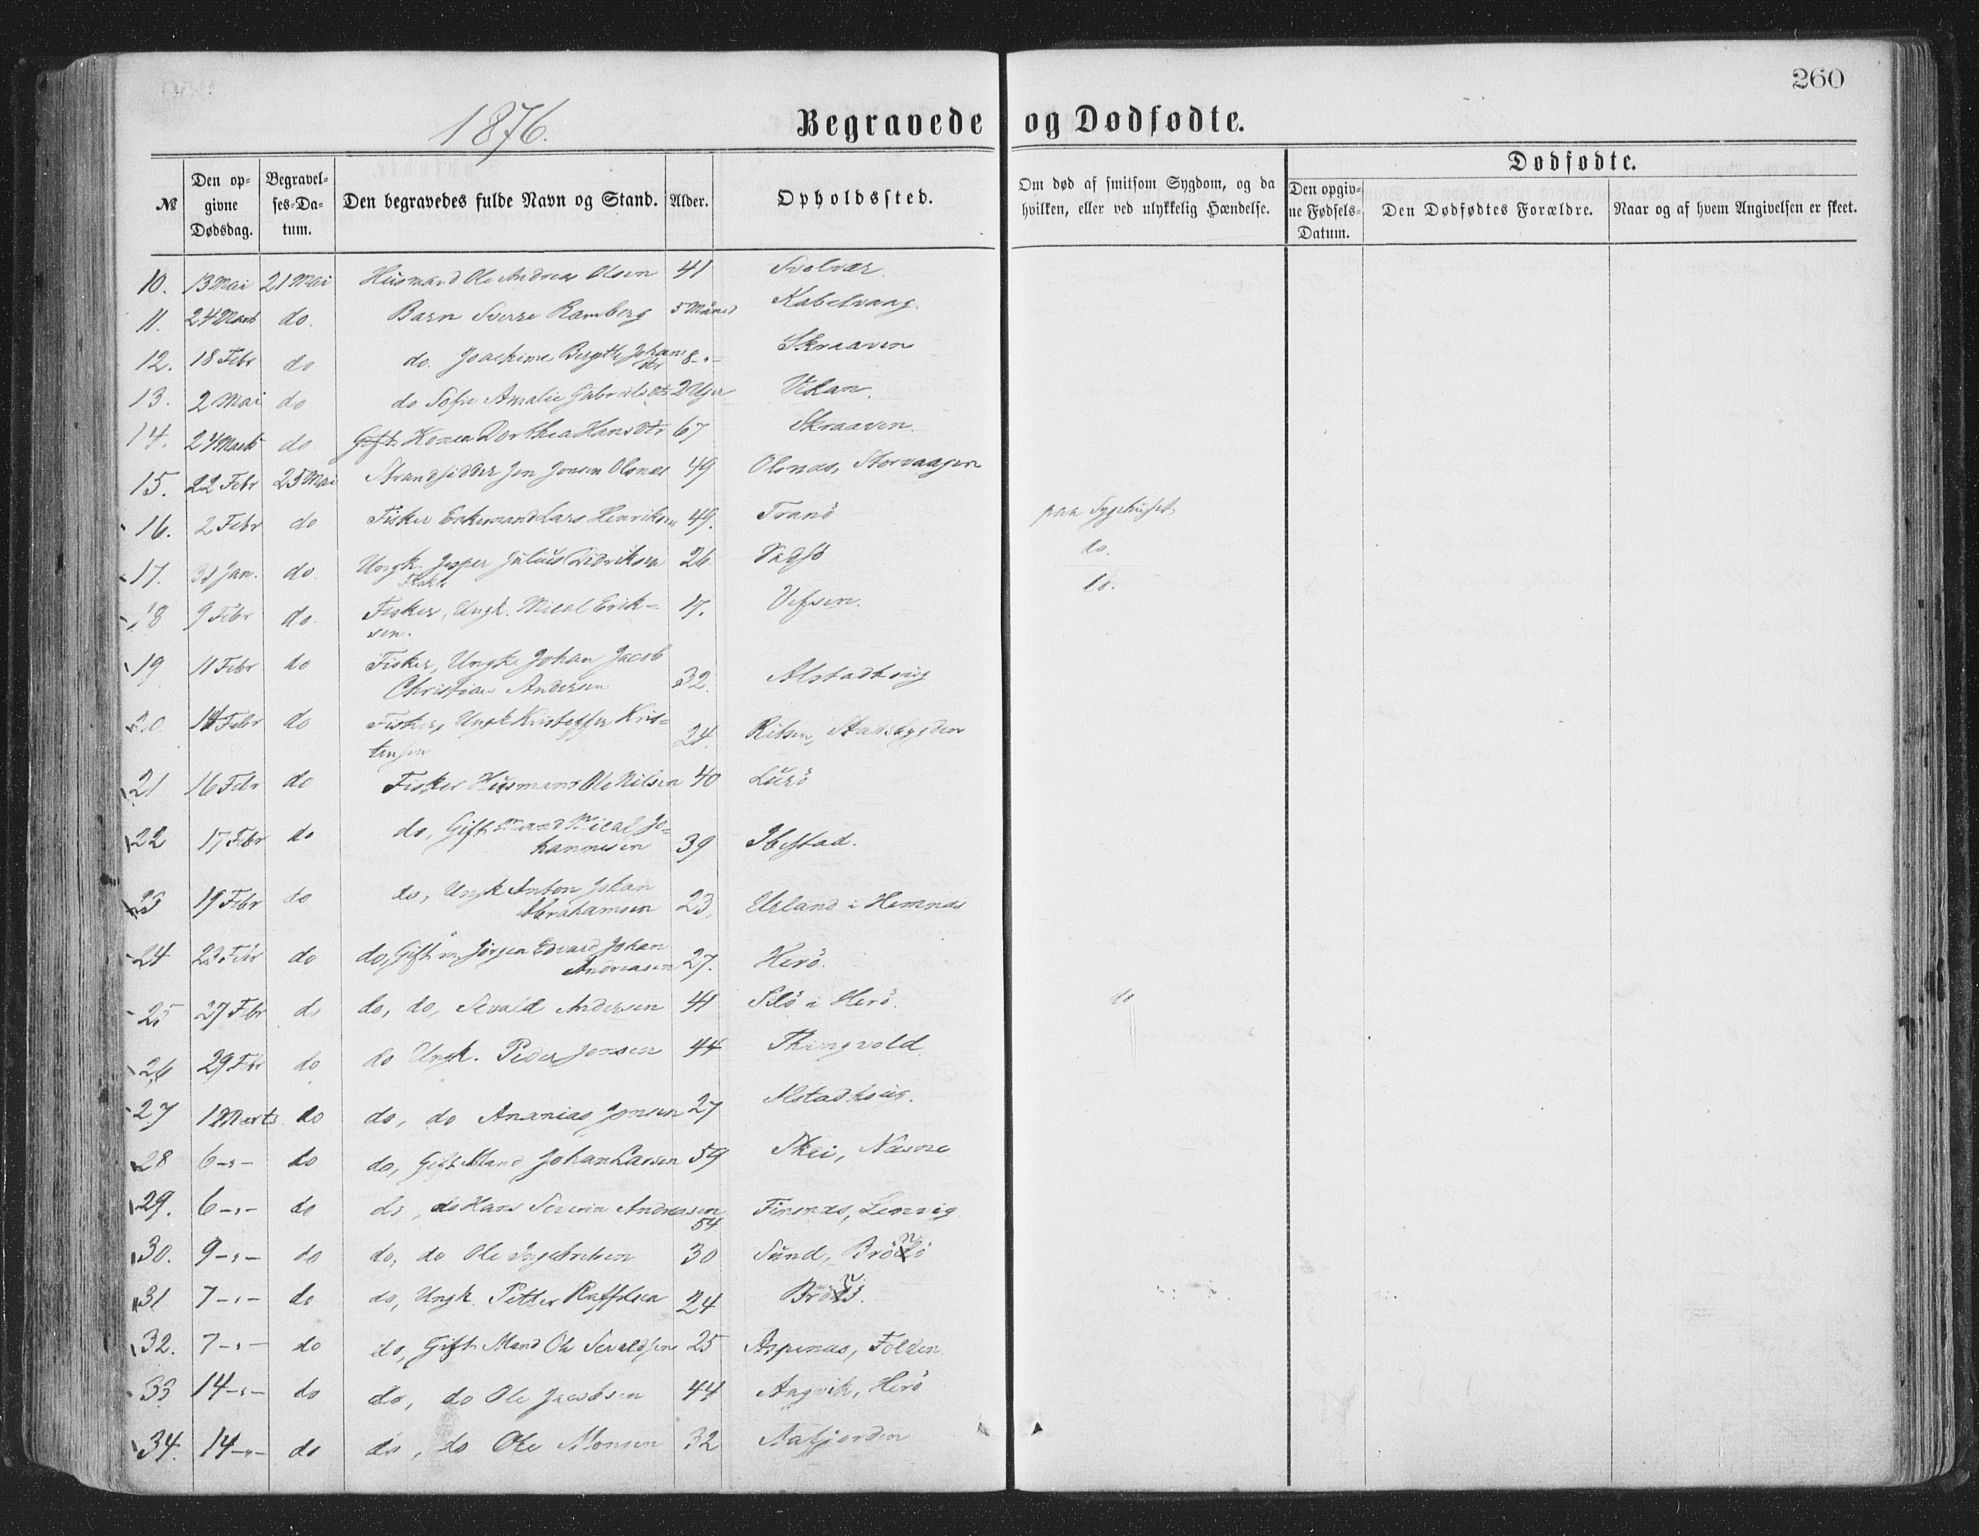 260
1876.
Begravede og Dødfødte.
№ Den opgivne Dødsdag. Begravelses-Datum. Den begravedes fulde Navn og Stand. Alder. Opholdssted. Om død af smitsom Sygdom, og da hvilken, eller ved ulykkelig Hændelse. Dødfødte. Den opgivne Fødsels-Datum. Den Dødfødtes Forældre. Naar og af hvem Angivelsen er skeet.
10. 13 Mai 21 Mai Husmand Ole Andreas Olsen 41 Svolvær.
11. 24 Marts do. Barn Sverre Ramberg 5 Måned Kabelvaag.
12. 18 Febr do do. Joachime Bergitte Johans dtr 8 -"- Skraaven
13. 2 Mai do do Sofie Amalie Gabrielsdtr 2 Uger Vikan.
14. 24 Marts do. Gift Konen Dorthea Hansdtr 67 Skraaven.
15. 22 Febr 25 Mai Strandsidder Jon Jonsen Olsnes 49 Olsnes, Storvaagen
16. 2 Febr do Fisker Enkemand Lars Henriksen 49. Tranö paa Sygehuset
17. 31 Jan. do. Ungk. Jesper Julius Didriksen 26 Vadsö do.
18 9 Febr do. Fisker, Ungk. Mical Erik-
sen. 17. Vefsen. do.
19 11 Febr do Fisker, Ungk. Johan Jacob
Christian Andersen 32. Alstadhoug
20 14 Febr do Fisker, Ungk Kristoffer Kris-
tensen 24. Ritsen, Stadsbygden
21 16 Febr do Fisker Husmand Ole Nilsen 40 Lurö
22 17 Febr do do, Gift Mand Mical Jo-
hannesen 39 Ibestad.
23 19 Febr do do, Ungk Anton Johan
Abrahamsen 23. Urland i Hemnæs
24 23 Febr do do, Gift m Jörgen Edvard Johan
Andreasen 27. Herö.
25 27 Febr do do, do, Sevald Andersen 41 i Herö. do
26 29 Febr do do Ungk. Peder Jonsen 44 Thingvold
27 1 Marts do do, do Ananias Jonsen 27 Alstadhoug.
28 6 -"- do do, Gift Mand Johan Larsen 59 Skei, Næsne
29. 6 -"- do do, do Hans Severin Andreasen 54 Finsnæs, Lenvig
30. 9 -"- do do, do Ole Ingebretsen 30 Sund, Brönö
31 7 -"- do do, Ungk. Petter Raffelsen 24 Brönö.
32. 7 -"- do do, Gift Mand Ole Sevaldsen 25 Aspenes, Folden
33 14 -"- do do, do Ole Jacobsen 44 Angvik, Herö
34. 14 -"- do do, do Ole Monsen 32 Aafjorden